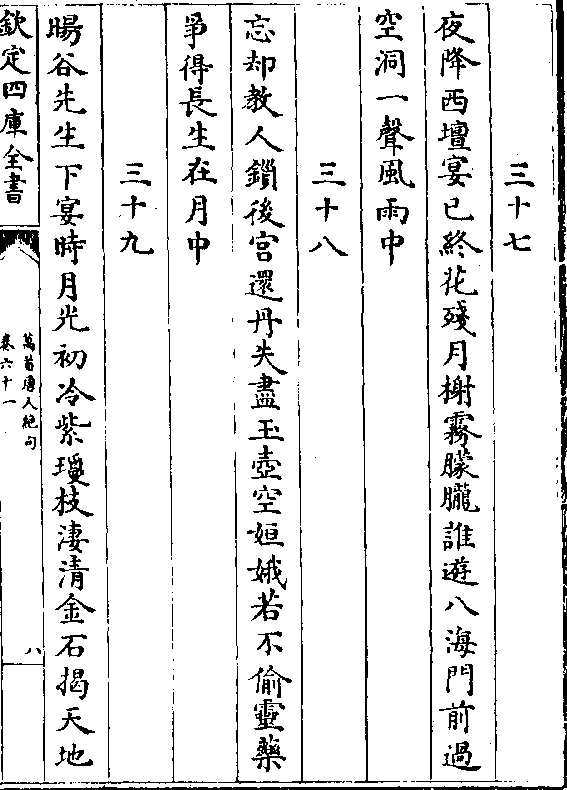 三十七
夜降西壇宴已終花殘月榭霧朦朧誰遊八海門前過
空洞一聲風雨中
三十八
忘却教人鎖後宮還丹失盡玉壺空姮娥若不偷靈藥
爭得長生在月中
三十九
暘谷先生下宴時月光初冷紫瓊枝淒清金石揭天地
欽定四庫全書
萬首唐人絶句
卷六十一
八